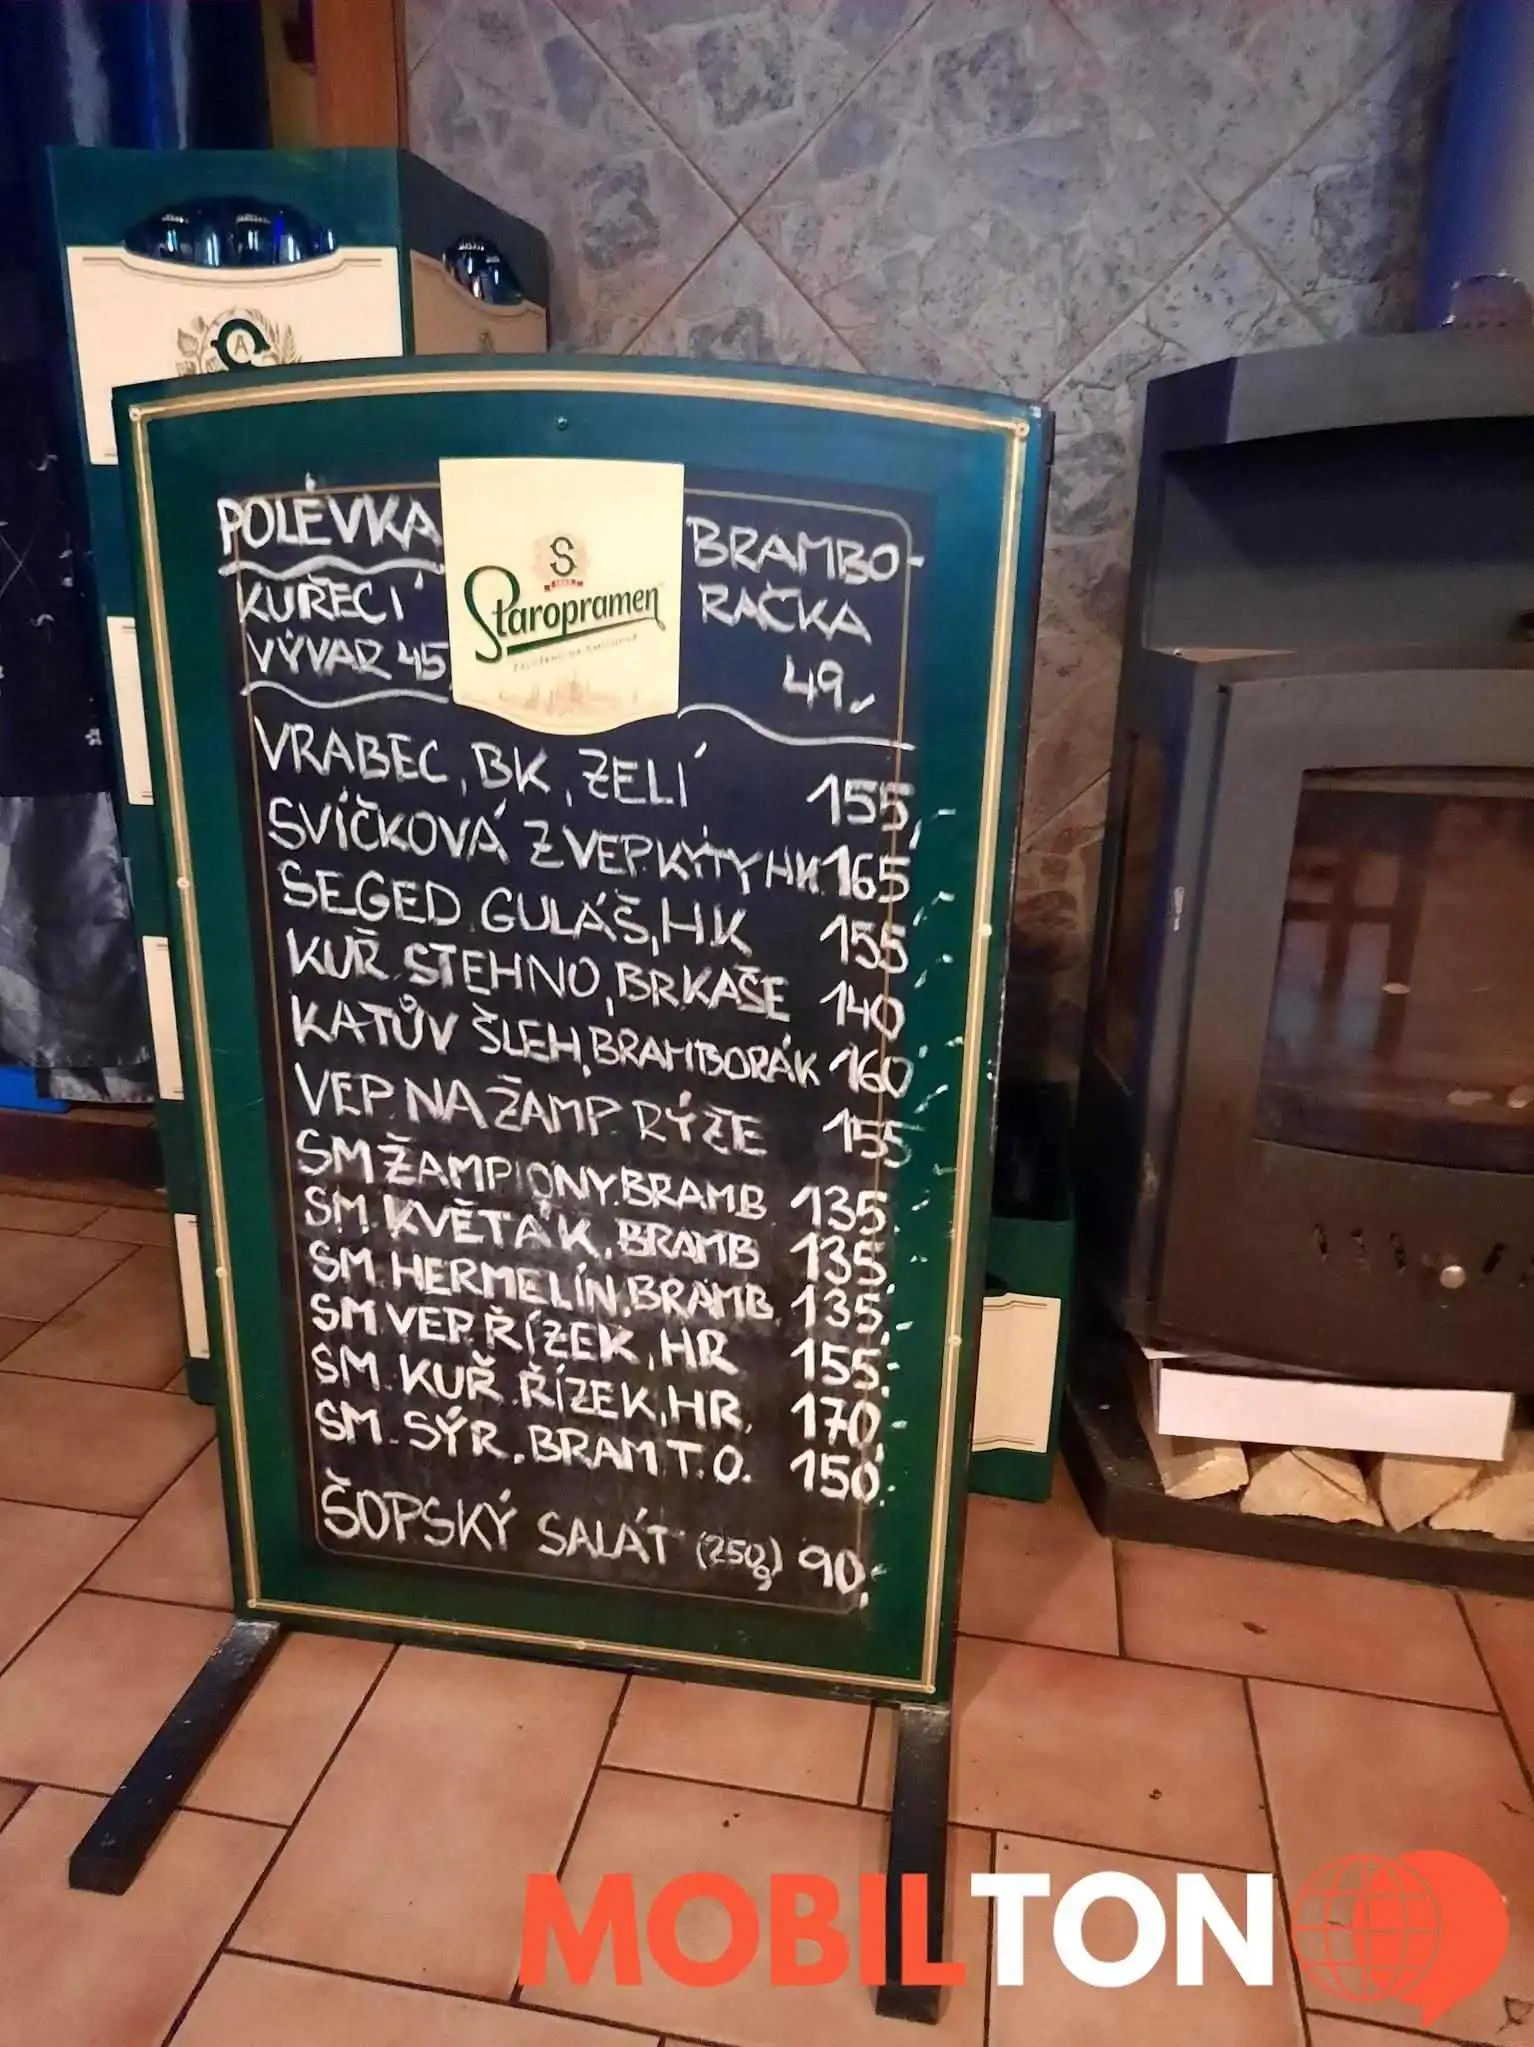 POLÉVKA
KUŘECÍ
VÝVAR 45
S
Staropramen
BRAMBO-
RAČKA
49,-
VRABEC, BK, ZELÍ 155,-
SVÍČKOVÁ Z VEP. KÝTY HK 165,-
SEGED. GULÁŠ, HK 155,-
KUŘ. STEHNO, BR KAŠE 140,-
KATŮV ŠLEH, BRAMBORÁK 160,-
VEP. NA ŽAMP. RÝŽE 155,-
SM ŽAMPIONY. BRAMB 135,-
SM. KVĚTÁK, BRAMB 135,-
SM. HERMELÍN, BRAMB. 135,-
SM VEP. ŘÍZEK, HR 155,-
SM. KUŘ. ŘÍZEK, HR, 170,-
SM. SÝR, BRAM T.O. 150,-
ŠOPSKÝ SALÁT (250g) 90,-
MOBILTON